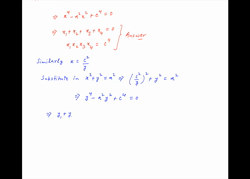 ⇒ x⁴ - a²x² + c⁴ = 0
⇒ x₁ + x₂ + x₃ + x₄ = 0
x₁ x₂ x₃ x₄ = c⁴
Answer
Similarly x = c²/y
Substitute in x² + y² = a² ⇒ (c²/y)² + y² = a²
⇒ y⁴ - a²y² + c⁴ = 0
⇒ y₁ + y